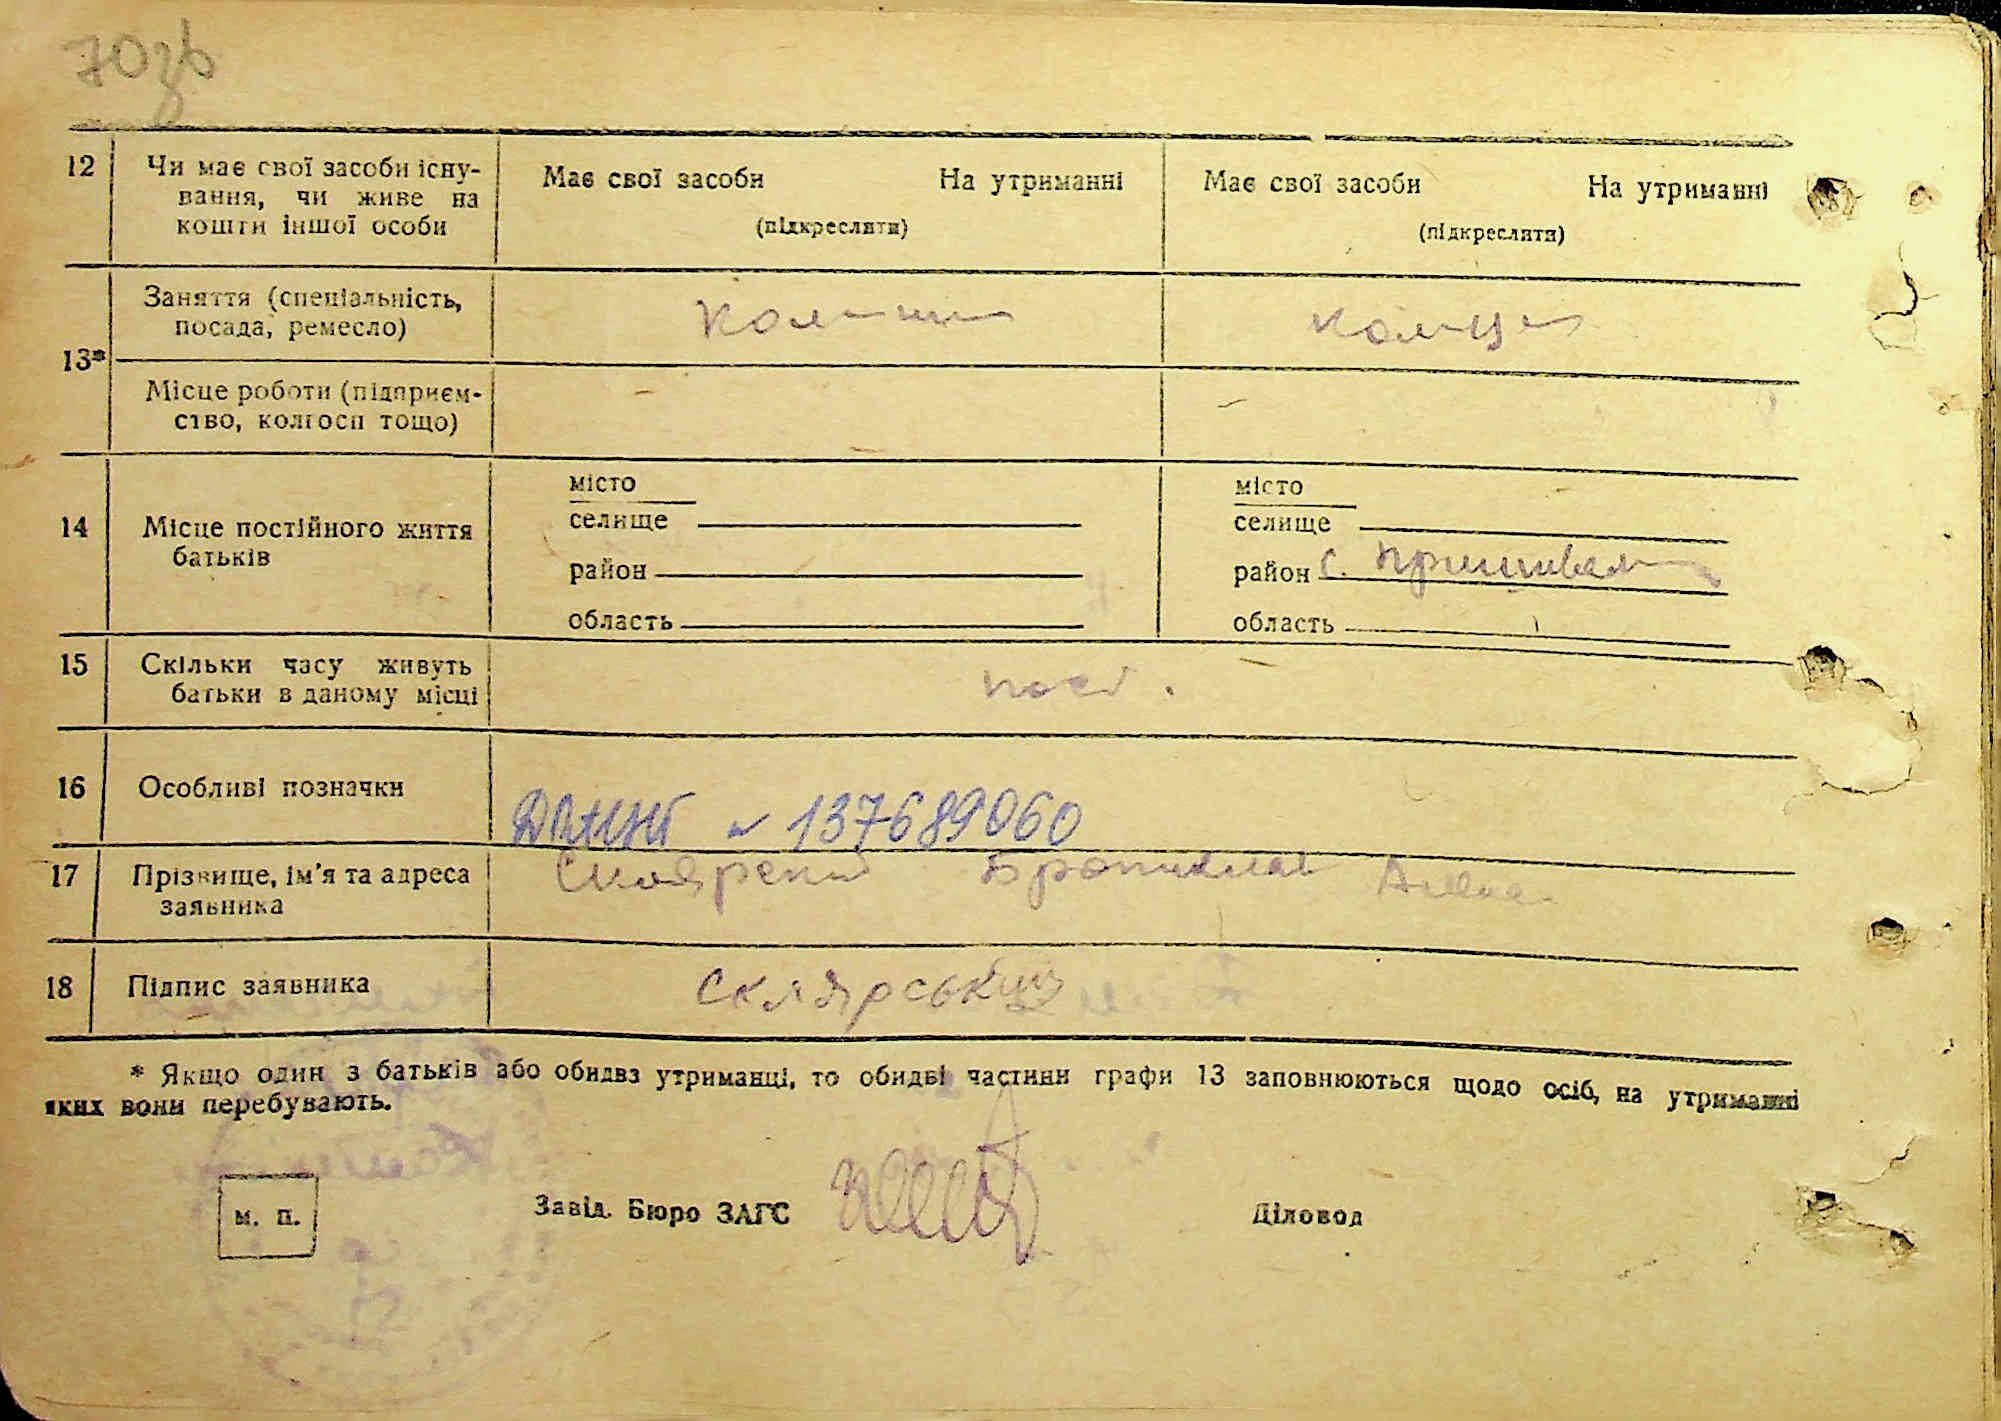 70зв
12 Чи має свої засоби існу-
вання, чи живе на
кошти іншої особи
Має свої засоби На утриманні
(підкреслити)
Має свої засоби На утриманні
(підкреслити)
13*
Заняття (спеціальність,
посада, ремесло)
Місце роботи (підприєм-
ство, колгосп тощо)
14 Місце постійного життя
батьків
місто
селище
район
область
місто
селище
район с.
область
15 Скільки часу живуть
батьки в даному місці
пост.
16 Особливі позначки
№ 137689060
17 Прізвище, ім'я та адреса
заявника
Склярский Бронислав
18 Підпис заявника
Склярський
* Якщо один з батьків або обидва утриманці, то обидві частини графи 13 заповнюються щодо осіб, на утриманні
яких вони перебувають.
м. п.
Завід. Бюро ЗАГС
Діловод